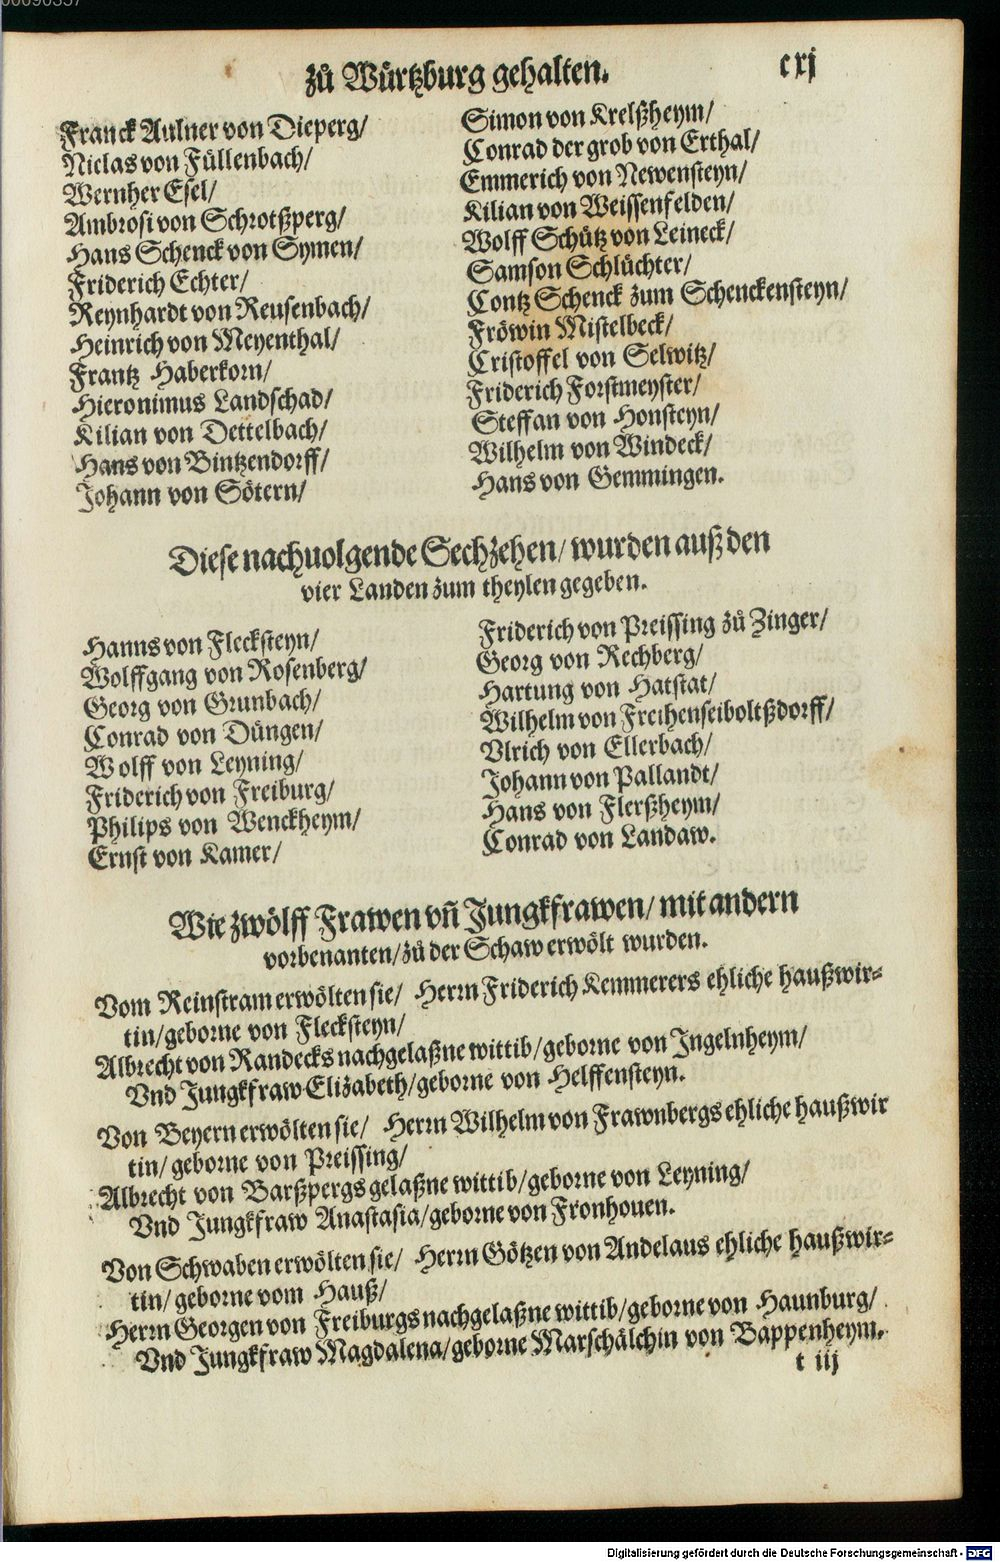 zů Wůrtzburg gehalten.
cxj
Franck Aulner von Dieperg/
Niclas von Füllenbach/
Wernher Esel/
Ambrosi von Schrotßperg/
Hans Schenck von Symen/
Friderich Echter/
Reynhardt von Reusenbach/
Heinrich von Meyenthal/
Frantz Haberkorn/
Hieronimus Landschad/
Kilian von Dettelbach/
Hans von Bintzendorff/
Johann von Sötern/
Simon von Krelßheym/
Conrad der grob von Erthal/
Emmerich von Newensteyn/
Kilian von Weissenfelden/
Wolff Schütz von Leineck/
Samson Schlüchter/
Contz Schenck zum Schenckensteyn/
Fröwin Mistelbeck/
Cristoffel von Selwitz/
Friderich Forstmeyster/
Steffan von Honsteyn/
Wilhelm von Windeck/
Hans von Gemmingen.
Diese nachuolgende Sechzehen/ wurden auß den
vier Landen zum theylen gegeben.
Hanns von Flecksteyn/
Wolffgang von Rosenberg/
Georg von Grunbach/
Conrad von Düngen/
Wolff von Leyning/
Friderich von Freiburg/
Philips von Wenckheym/
Ernst von Kamer/
Friderich von Preissing zů Zinger/
Georg von Rechberg/
Hartung von Hatstat/
Wilhelm von Freihenseiboltßdorff/
Vlrich von Ellerbach/
Johann von Pallandt/
Hans von Flerßheym/
Conrad von Landaw.
Wie zwölff Frawen vñ Jungkfrawen/ mit andern
vorbenanten/ zů der Schaw erwölt wurden.
Vom Reinstram erwölten sie/ Herrn Friderich Kemmerers ehliche haußwir=
tin/ geborne von Flecksteyn/
Albrecht von Randecks nachgelaßne wittib/ geborne von Ingelnheym/
Vnd Jungkfraw Elizabeth/ geborne von Helffensteyn.
Von Beyern erwölten sie/ Herrn Wilhelm von Frawnbergs ehliche haußwir
tin/ geborne von Preissing/
Albrecht von Barßpergs gelaßne wittib/ geborne von Leyning/
Vnd Jungkfraw Anastasia/ geborne von Fronhouen.
Von Schwaben erwölten sie/ Herrn Götzen von Andelaus ehliche haußwir=
tin/ geborne vom Hauß/
Herrn Georgen von Freiburgs nachgelaßne wittib/ geborne von Haunburg/
Vnd Jungkfraw Magdalena/ geborne Marschälchin von Bappenheym.
t iij
Digitalisierung gefördert durch die Deutsche Forschungsgemeinschaft - DFG